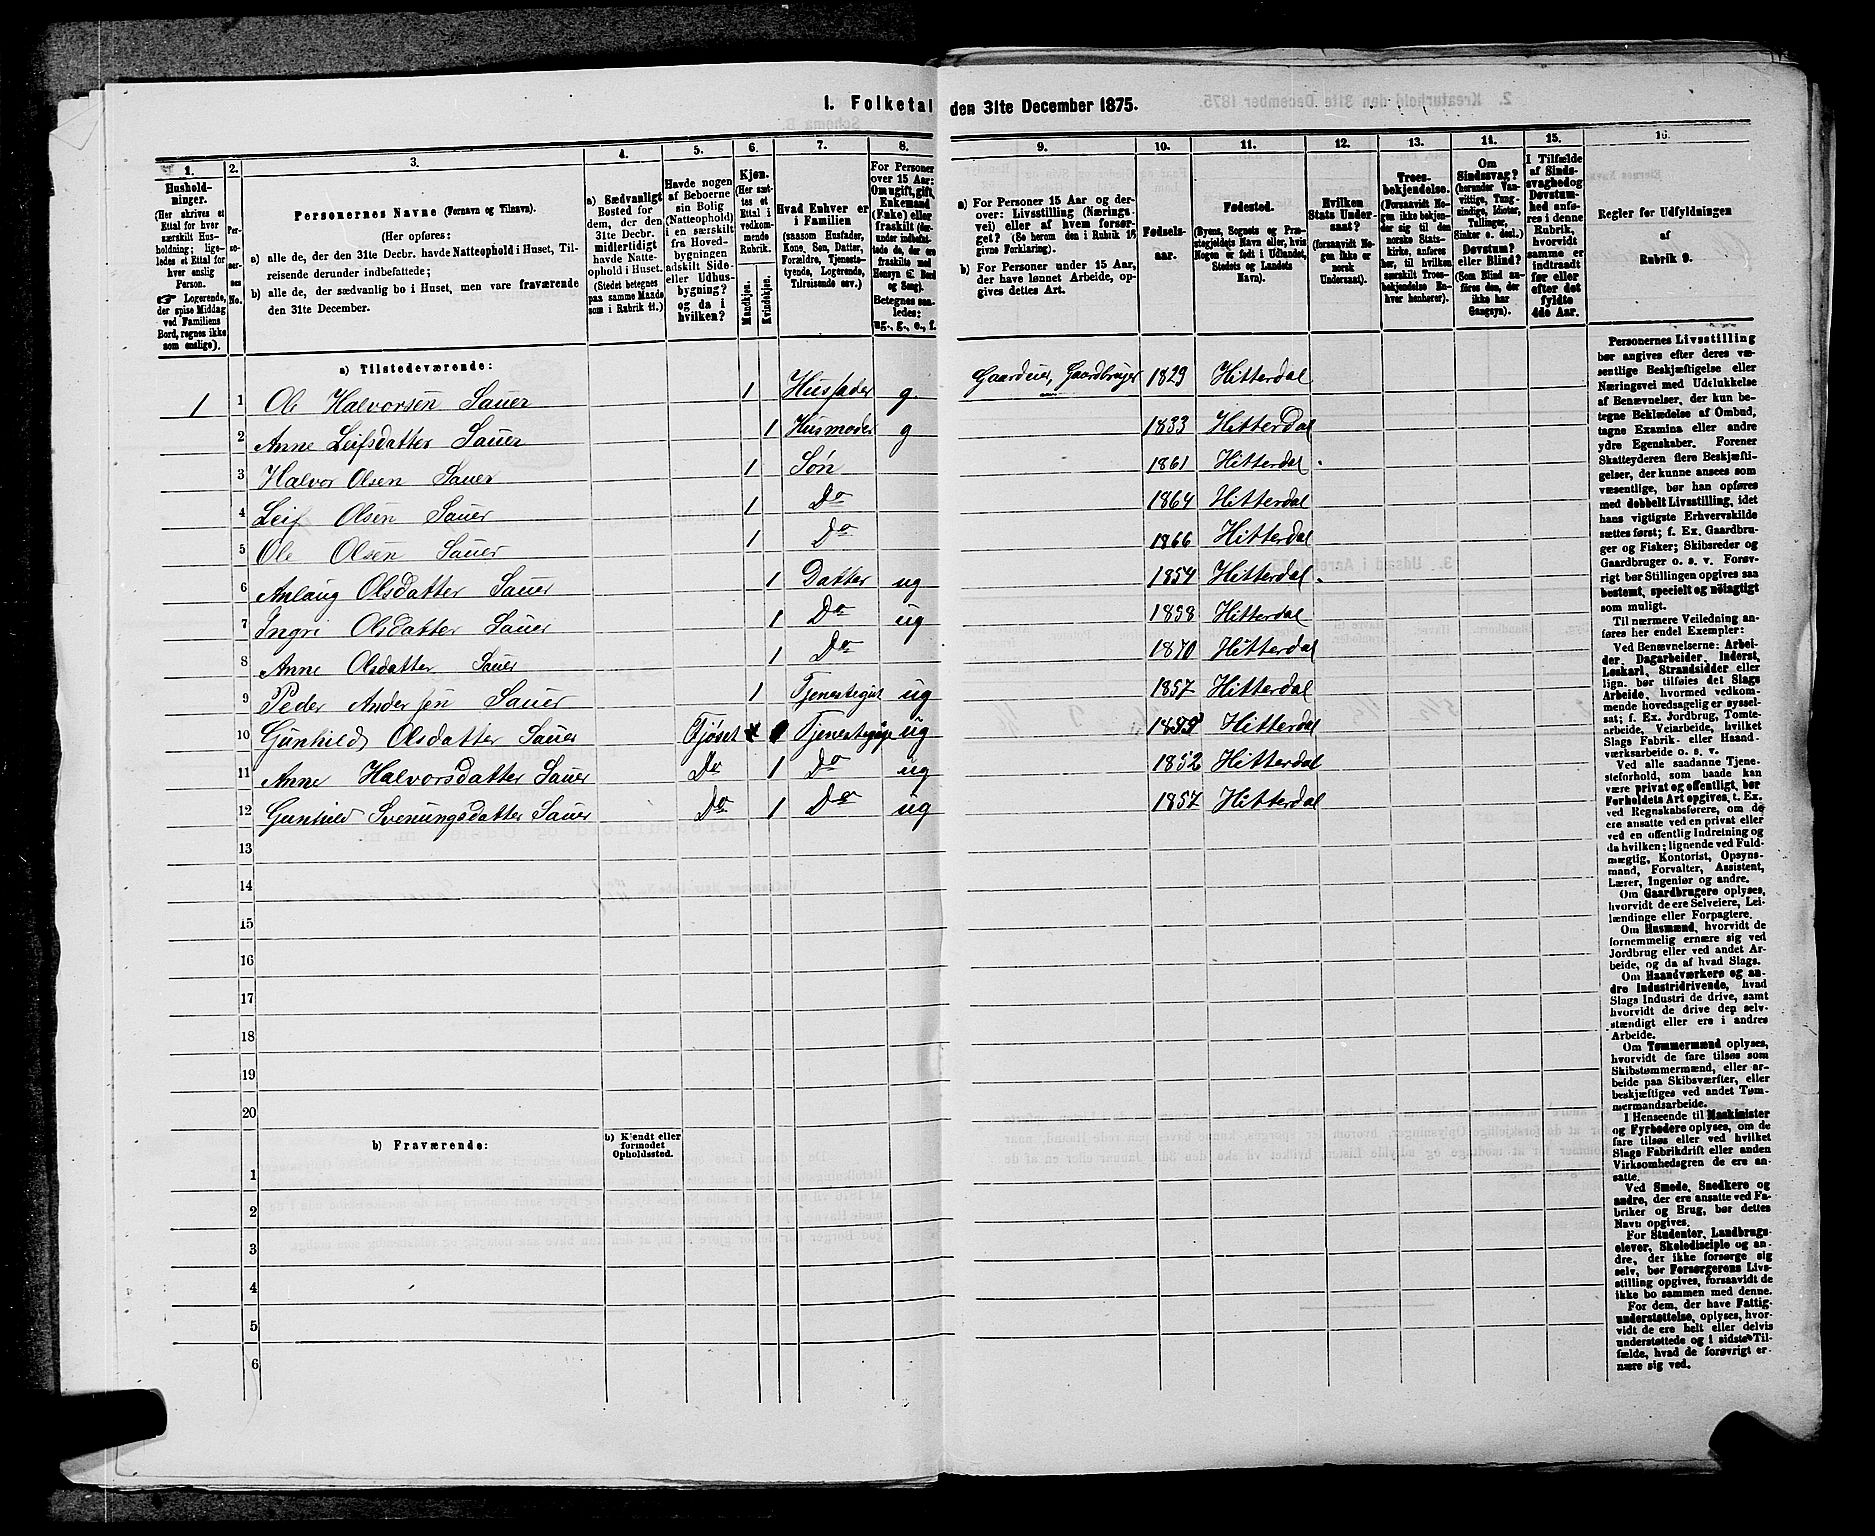 1. Folketal den 31te December 1875.
1. 2. 3. 4. 5. 6. 7. 8. 9. 10. 11. 12. 13. 14. 15. 16.
Hushold-
ninger.
(Her skrives et
Ettal for hver
særskilt Hus-
holdning; lige-
ledes et Ettal for
hver enslig
Person.
☞ Logerende,
der spise Middag
ved Familiens
Bord, regnes ikke
som enslige).
Per-
so-
ner-
nes
No.
Personernes Navne (Fornavn og Tilnavn).
(Her opføres:
a) alle de, der den 31te Decbr. havde Natteophold i Huset, Til-
reisende derunder indbefattede;
b) alle de, der sædvanlig bo i Huset, men vare fraværende
den 31te December.
a) Sædvanligt
Bosted for
dem, der den
31te Decbr.
midlertidigt
havde Natte-
ophold i Huset.
(Stedet betegnes
paa samme Maade
som i Rubrik 11.)
Havde nogen
af Beboerne
sin Bolig
(Natteophold)
i en særskilt
fra Hoved-
bygningen
adskilt Side-
eller Udhus-
bygning?
og da i
hvilken?
Kjøn.
(Her sæt-
tes et
Ettal i
vedkom-
mende
Rubrik.
Mandkjøn.
Kvindekjøn.
Hvad Enhver er
i Familien
(saasom Husfader,
Kone, Søn, Datter,
Forældre, Tjeneste-
tyende, Logerende,
Tilreisende osv.)
For Personer
over 15 Aar:
Om ugift, gift,
Enkemand
(Enke) eller
fraskilt (der-
under indbefat-
tede de, der ere
fraskilte med
Hensyn til Bord
og Seng).
Betegnes saa-
ledes:
ug., g., e., f.
a) For Personer 15 Aar og der-
over: Livsstilling (Nærings-
vei) eller af hvem forsør-
get? (Se herom den i Rubrik 16
givne Forklaring).
b) For Personer under 15 Aar,
der have lønnet Arbeide, op-
gives dettes Art.
Fødsels-
aar.
Fødested.
(Byens, Sognets og Præ-
stegjeldets Navn eller, hvis
Nogen er født i Udlandet,
Stedets og Landets
Navn).
Hvilken
Stats Under-
saat?
(forsaavidt No-
gen ikke er
norsk
Undersaat).
Troes-
bekjendelse.
(Forsaavidt No-
gen ikke bekjen-
der sig til den
norske Stats-
kirke, anføres
her, til hvilken
særskilt Troes-
bekjendelse En-
hver henhører).
Om
Sindssvag?
(herunder Van-
vittige, Tung-
sindige, Idioter,
Tullinger,
Sinker o. desl.)
Døvstum?
eller Blind?
(Som Blind an-
føres den, der
ikke har
Gangsyn).
I Tilfælde
af Sinds-
svaghed og
Døvstum-
hed anfø-
res i denne
Rubrik,
hvorvidt
samme er
indtraadt
før eller
efter det
fyldte
4de Aar.
Regler for Udfyldningen
af
Rubrik 9.
a) Tilstedeværende:
1 1 Ole Halvorsen Sauer 1 Husfader g. Gaardeier, Gaardbruger 1829 Hitterdal
2 Anne Leifsdatter Sauer 1 Husmoder g 1833 Hitterdal
3 Halvor Olsen Sauer 1 Søn 1861 Hitterdal
4 Leif Olsen Sauer 1 Do 1864 Hitterdal
5 Ole Olsen Sauer 1 Do 1866 Hitterdal
6 Anlaug Olsdatter Sauer 1 Datter ug 1854 Hitterdal
7 Ingri Olsdatter Sauer 1 Do ug 1858 Hitterdal
8 Anne Olsdatter Sauer 1 Do 1870 Hitterdal
9 Peder Andersen Sauer 1 Tjenestegut ug 1857 Hitterdal
10 Gunhild Olsdatter Sauer Fjøset 1 Tjenestepige ug Hitterdal
11 Anne Halvorsdatter Sauer Do 1 Do ug 1852 Hitterdal
12 Gunhild Svenungsdatter Sauer Do 1 Do ug 1857 Hitterdal
13
14
15
16
17
18
19
20
b) Fraværende: b) Kjendt eller
formodet
Opholdssted.
1
2
3
4
5
6
Personernes Livsstilling
bør angives efter deres væ-
sentlige Beskjæftigelse eller
Næringsvei med Udelukkelse
af Benævnelser, der kun be-
tegne Beklædelse af Ombud,
tagne Examina eller andre
ydre Egenskaber. Forener
Skatteyderen flere Beskjæfti-
gelser, der kunne ansees som
væsentlige, bør han opføres
med dobbelt Livsstilling, idet
hans vigtigste Erhvervskilde
sættes først; f. Ex. Gaardbru-
ger og Fisker; Skibsreder og
Gaardbruger o. s. v. Forøv-
rigt bør Stillingen opgives saa
bestemt, specielt og nöiagtigt
som muligt.
Til nærmere Veiledning an-
føres her endel Exempler:
Ved Benævnelserne: Arbei-
der, Dagarbeider, Inderst,
Løskarl, Strandsidder eller
lign. bør tilføies det Slags
Arbeide, hvormed vedkom-
mende hovedsagelig er syssel-
sat; f. Ex. Jordbrug, Tomte-
arbeide, Veiarbeide, hvilket
Slags Fabrik- eller Haand-
værksarbeide o. s. v.
Ved alle saadanne Tjene-
steforhold, som baade kan
være privat og offentligt, bør
Forholdets Art opgives, t. Ex.
ved Regnskabsførere, om de
ere ansatte ved en privat eller
ved en offentlig Indretning og
da hvilken; lignende ved Fuld-
mægtig, Kontorist, Opsyns-
mand, Forvalter, Assistent,
Lærer, Ingeniør og andre.
Om Gaardbrugere oplyses,
hvorvidt de ere Selveiere, Lei-
lændinge eller Forpagtere.
Om Husmænd, hvorvidt de
fornemmelig ernære sig ved
Jordbrug eller ved andet Ar-
beide, og da af hvad Slags.
Om Haandværkere og an-
dre Industridrivende, hvad
Slags Industri de drive, samt
hvorvidt de drive den selv-
stændigt eller ere i andres
Arbeide.
Om Tømmermænd oplyses,
hvorvidt de fare tilsøs som
Skibstømmermænd, eller ar-
beide paa Skibsværfter, eller
beskjæftiges ved andet Tøm-
mermandsarbeide.
I Henseende til Maskinister
og Fyrbødere oplyses, om de
fare tilsøs eller ved hvilket
Slags Fabrikdrift eller anden
Virksomhedsgren de ere an-
satte.
Ved Smede, Snedkere og
andre, der ere ansatte ved Fa-
briker og Brug, bør dettes
Navn opgives.
For Studenter, Landbrugs-
elever, Skoledisciple og an-
dre, der ikke forsørge sig
selv, bør Forsørgerens Livs-
stilling opgives, forsaavidt de
ikke bo sammen med denne.
For dem, der have Fattig-
understøttelse, oplyses, hvor-
vidt de ere helt eller delvis
understøttede og i sidste Til-
fælde, hvad de forøvrigt er-
nære sig ved.